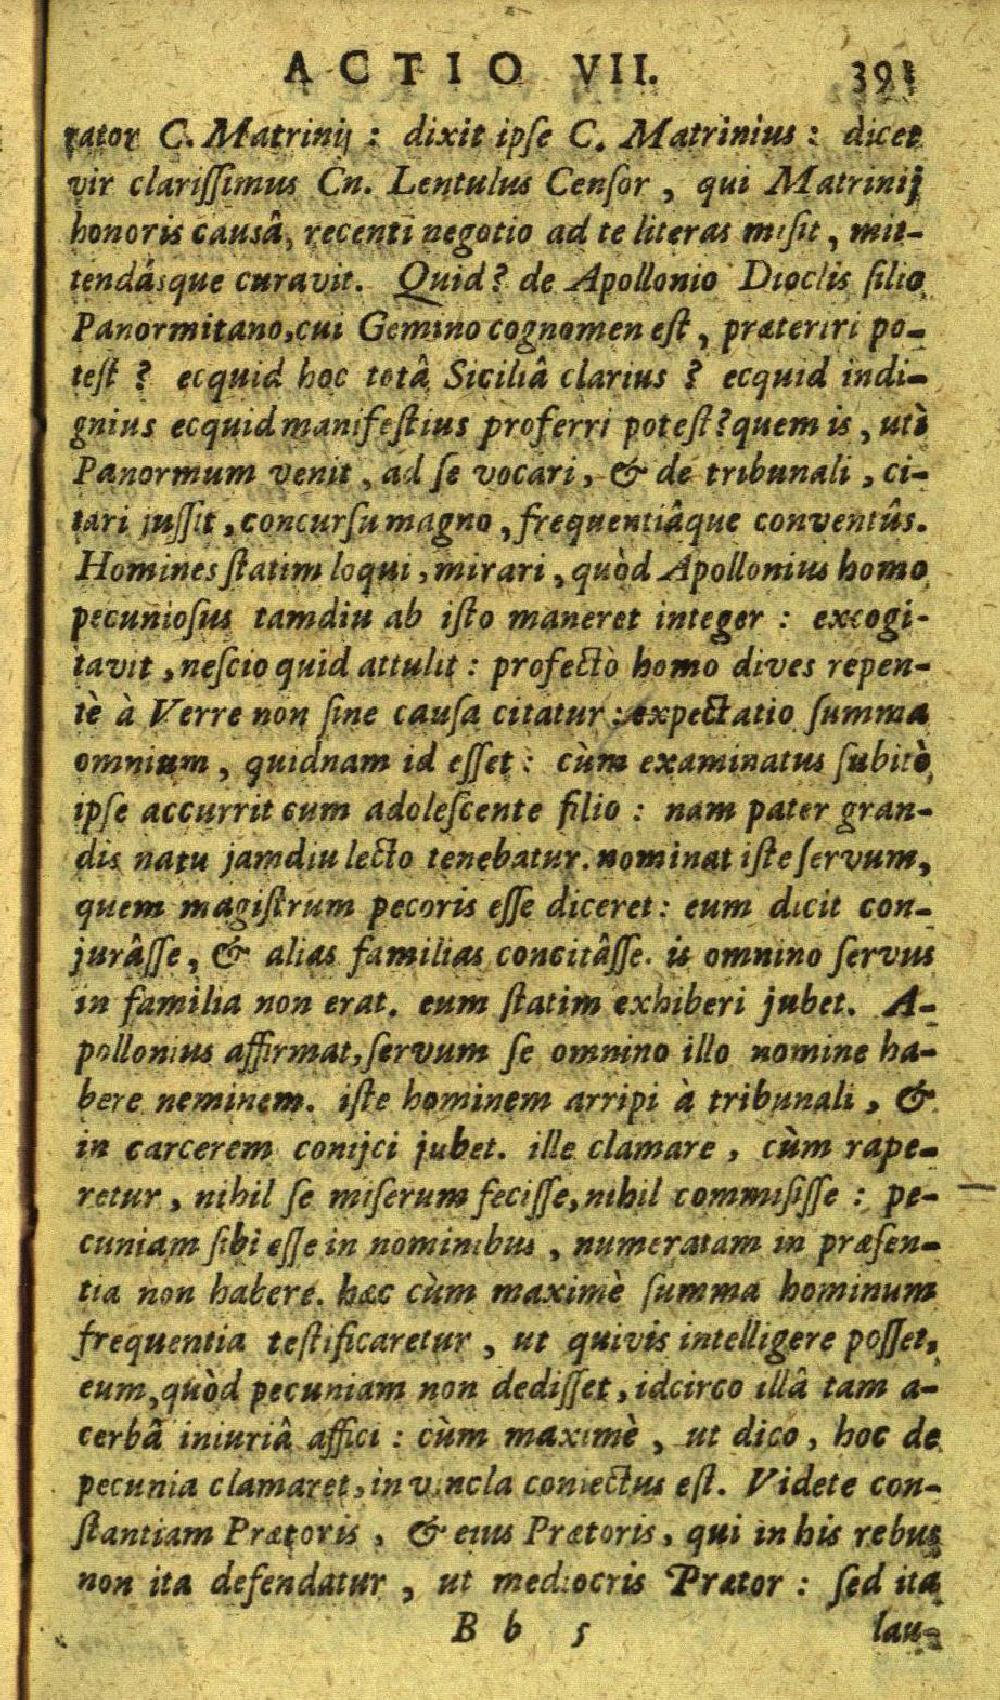 ACTIO VII. 391
rator C. Matrinij : dixit ipſe C. Matrinius : dicet
vir clariſſimus Cn. Lentulus Cenſor , qui Matrinij
honoris causâ, recenti negotio ad te literas miſit , mit-
tendásque curavit. Quid ? de Apollonio Dioclis filio
Panormitano, cui Gemino cognomen eſt , præteriri po-
teſt ? ecquid hoc totâ Siciliâ clarius ? ecquid indi-
gnius ecquid manifeſtius proferri poteſt ? quem is , utì
Panormum venit , ad ſe vocari , & de tribunali , ci-
tari juſſit , concurſu magno , frequentiâque conventûs.
Homines ſtatim loqui , mirari , quòd Apollonius homo
pecunioſus tamdiu ab iſto maneret integer : excogi-
tavit , neſcio quid attulit : profectò homo dives repen-
tè à Verre non ſine cauſa citatur : expectatio ſumma
omnium , quidnam id eſſet : cùm examinatus ſubitò
ipſe accurrit cum adoleſcente filio : nam pater gran-
dis natu jamdiu lecto tenebatur. nominat iſte ſervum,
quem magiſtrum pecoris eſſe diceret : eum dicit con-
jurâſſe , & alias familias concitâſſe. is omnino ſervus
in familia non erat. eum ſtatim exhiberi jubet. A-
pollonius affirmat, ſervum ſe omnino illo nomine ha-
bere neminem. iſte hominem arripi à tribunali , &
in carcerem conijci jubet. ille clamare , cùm rape-
retur , nihil ſe miſerum feciſſe, nihil commiſiſſe : pe-
cuniam ſibi eſſe in nominibus , numeratam in præſen-
tia non habere. hæc cùm maximè ſumma hominum
frequentia teſtificaretur , ut quivis intelligere poſſet,
eum, quòd pecuniam non dediſſet , idcirco illâ tam a-
cerbâ iniuriâ affici : cùm maximè , ut dico , hoc de
pecunia clamaret, in vincla coniectus eſt. Videte con-
ſtantiam Prætoris , & eius Prætoris , qui in his rebus
non ita defendatur , ut mediocris Prætor : ſed ita
B b 5 lau-